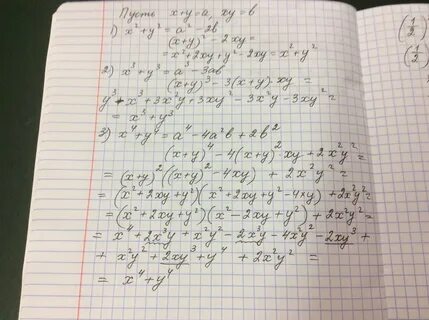 Пусть x+y=a, xy=b
1) x²+y²=a²-2b
(x+y)²-2xy=
=x²+2xy+y²-2xy=x²+y²
2) x³+y³=a³-3ab
(x+y)³-3(x+y)·xy=
y³+x³+3x²y+3xy²-3x²y-3xy²=
=x³+y³
3) x⁴+y⁴=a⁴-4a²b+2b²
(x+y)⁴-4(x+y)²xy+2x²y²=
=(x+y)²((x+y)²-4xy)+2x²y²=
=(x²+2xy+y²)(x²+2xy+y²-4xy)+2x²y²=
=(x²+2xy+y²)(x²-2xy+y²)+2x²y²=
=x⁴+2x³y+x²y²-2x³y-4x²y²-2xy³+
+x²y²+2xy³+y⁴+2x²y²=
=x⁴+y⁴
(1/2)
(1/2)